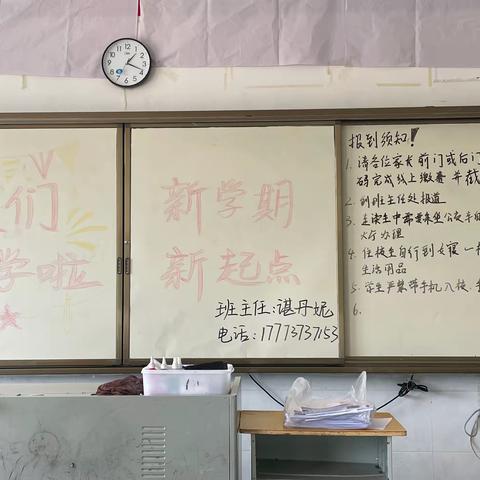 们
学啦
新学期
新起点
班主任:谌丹妮
电话:17773737153
报到须知!
1. 请各位家长前门或后门
码完成线上缴费并截
2. 到班主任处报道
3. 走读生中需要乘坐公交车的
大厅办理
4. 住校生自行到女寝一
生活用品
5. 学生严禁带手机入校,
6.